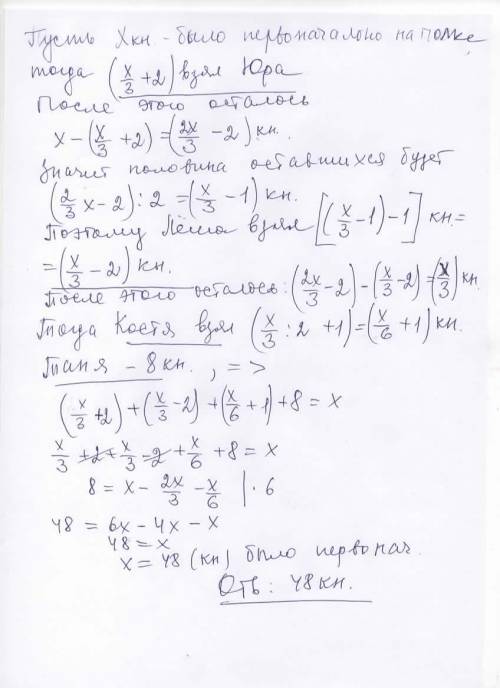 Пусть Xкн. - было первоначально на полке
тогда (x/3 + 2) взял Юра
После этого осталось
x - (x/3 + 2) = (2x/3 - 2) кн.
Значит половина оставшихся будет
(2/3 x - 2) : 2 = (x/3 - 1) кн.
Поэтому Лёша взял [(x/3 - 1) - 1] кн. =
= (x/3 - 2) кн.
После этого осталось: (2x/3 - 2) - (x/3 - 2) = (x/3) кн.
Тогда Костя взял (x/3 : 2 + 1) = (x/6 + 1) кн.
Таня - 8 кн. , = >
(x/3 + 2) + (x/3 - 2) + (x/6 + 1) + 8 = x
x/3 + 2 + x/3 - 2 + x/6 + 8 = x
8 = x - 2x/3 - x/6 | · 6
48 = 6x - 4x - x
48 = x
x = 48 (кн) было первонач.
Отв: 48 кн.